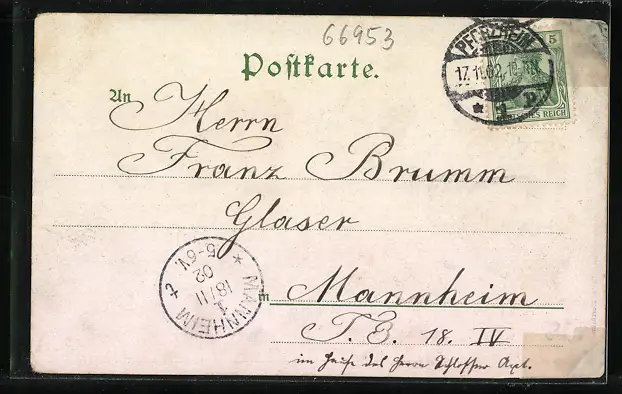 66953
Postkarte.
PFORZHEIM
17.11.02.
* 1 P.
5
DEUTSCHES REICH
An Herrn
Franz Brumm
Glaser
in Mannheim
T. 3. 18. IV
im Hause des Herrn Schlosser Apt.
* MANNHEIM 2
1
18/11
02
5-6V.